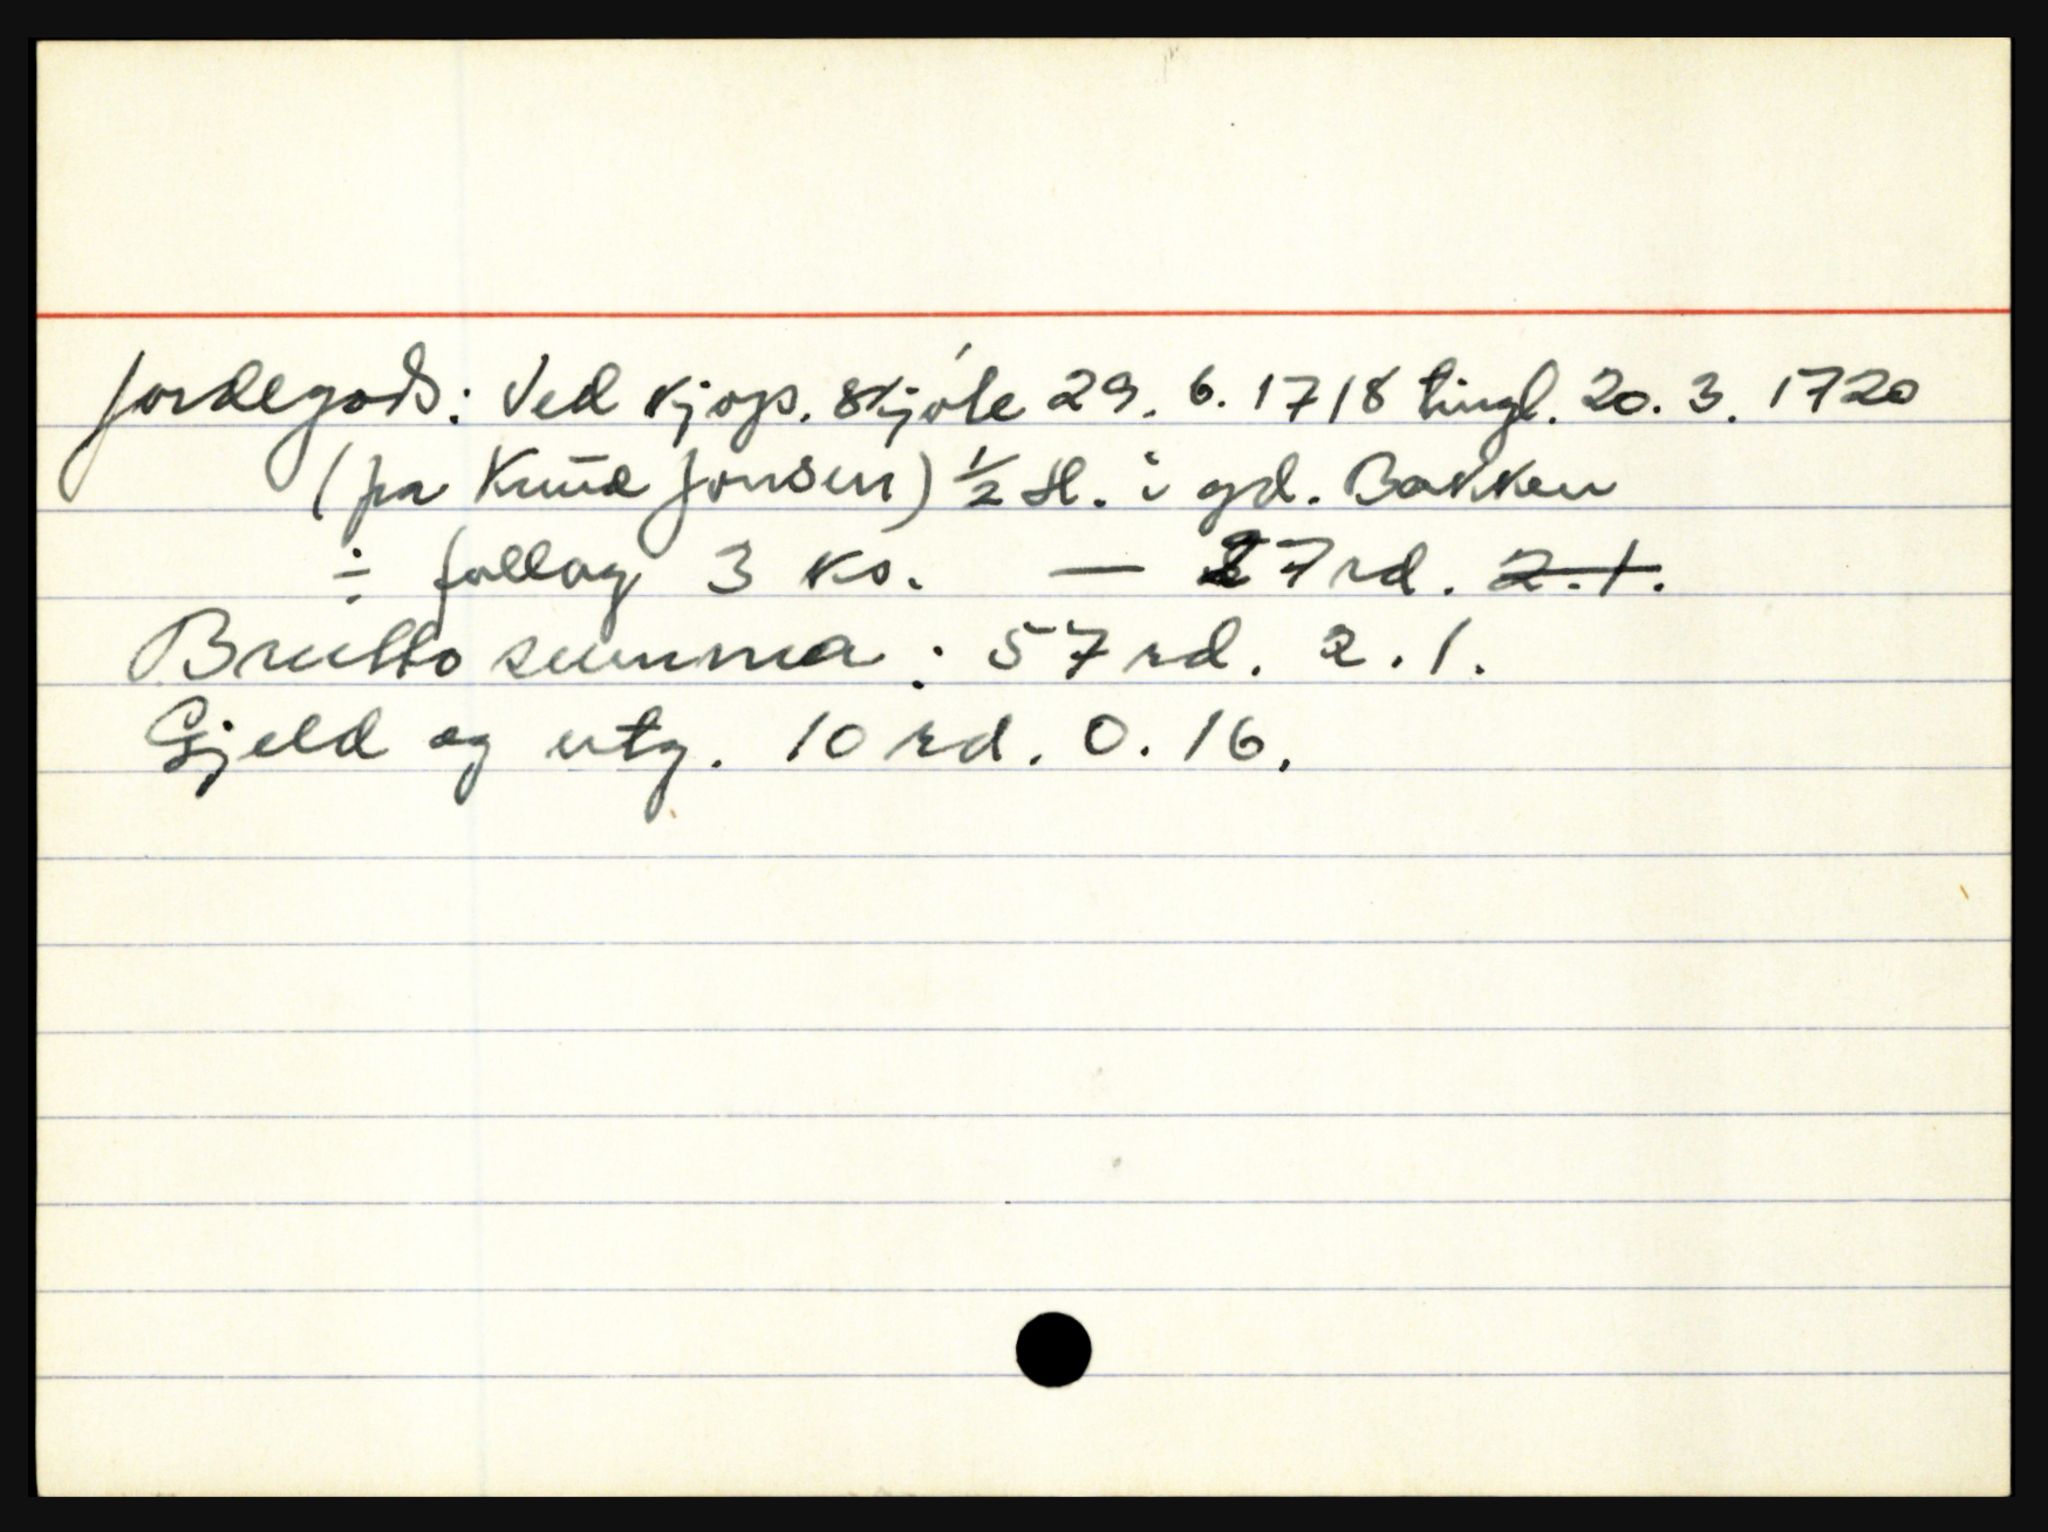 Jordegods: Ved kjøps. skjöte 29. 6. 1718 tingl. 20. 3. 1720
(fra Knud Jonsen) ½ Hl. i gd. Bakken
÷ follag 3 ks. — 27 rd. 2.1.
Brutto summa: 57 rd. 2.1.
Gjeld og utg. 10 rd. 0.16.